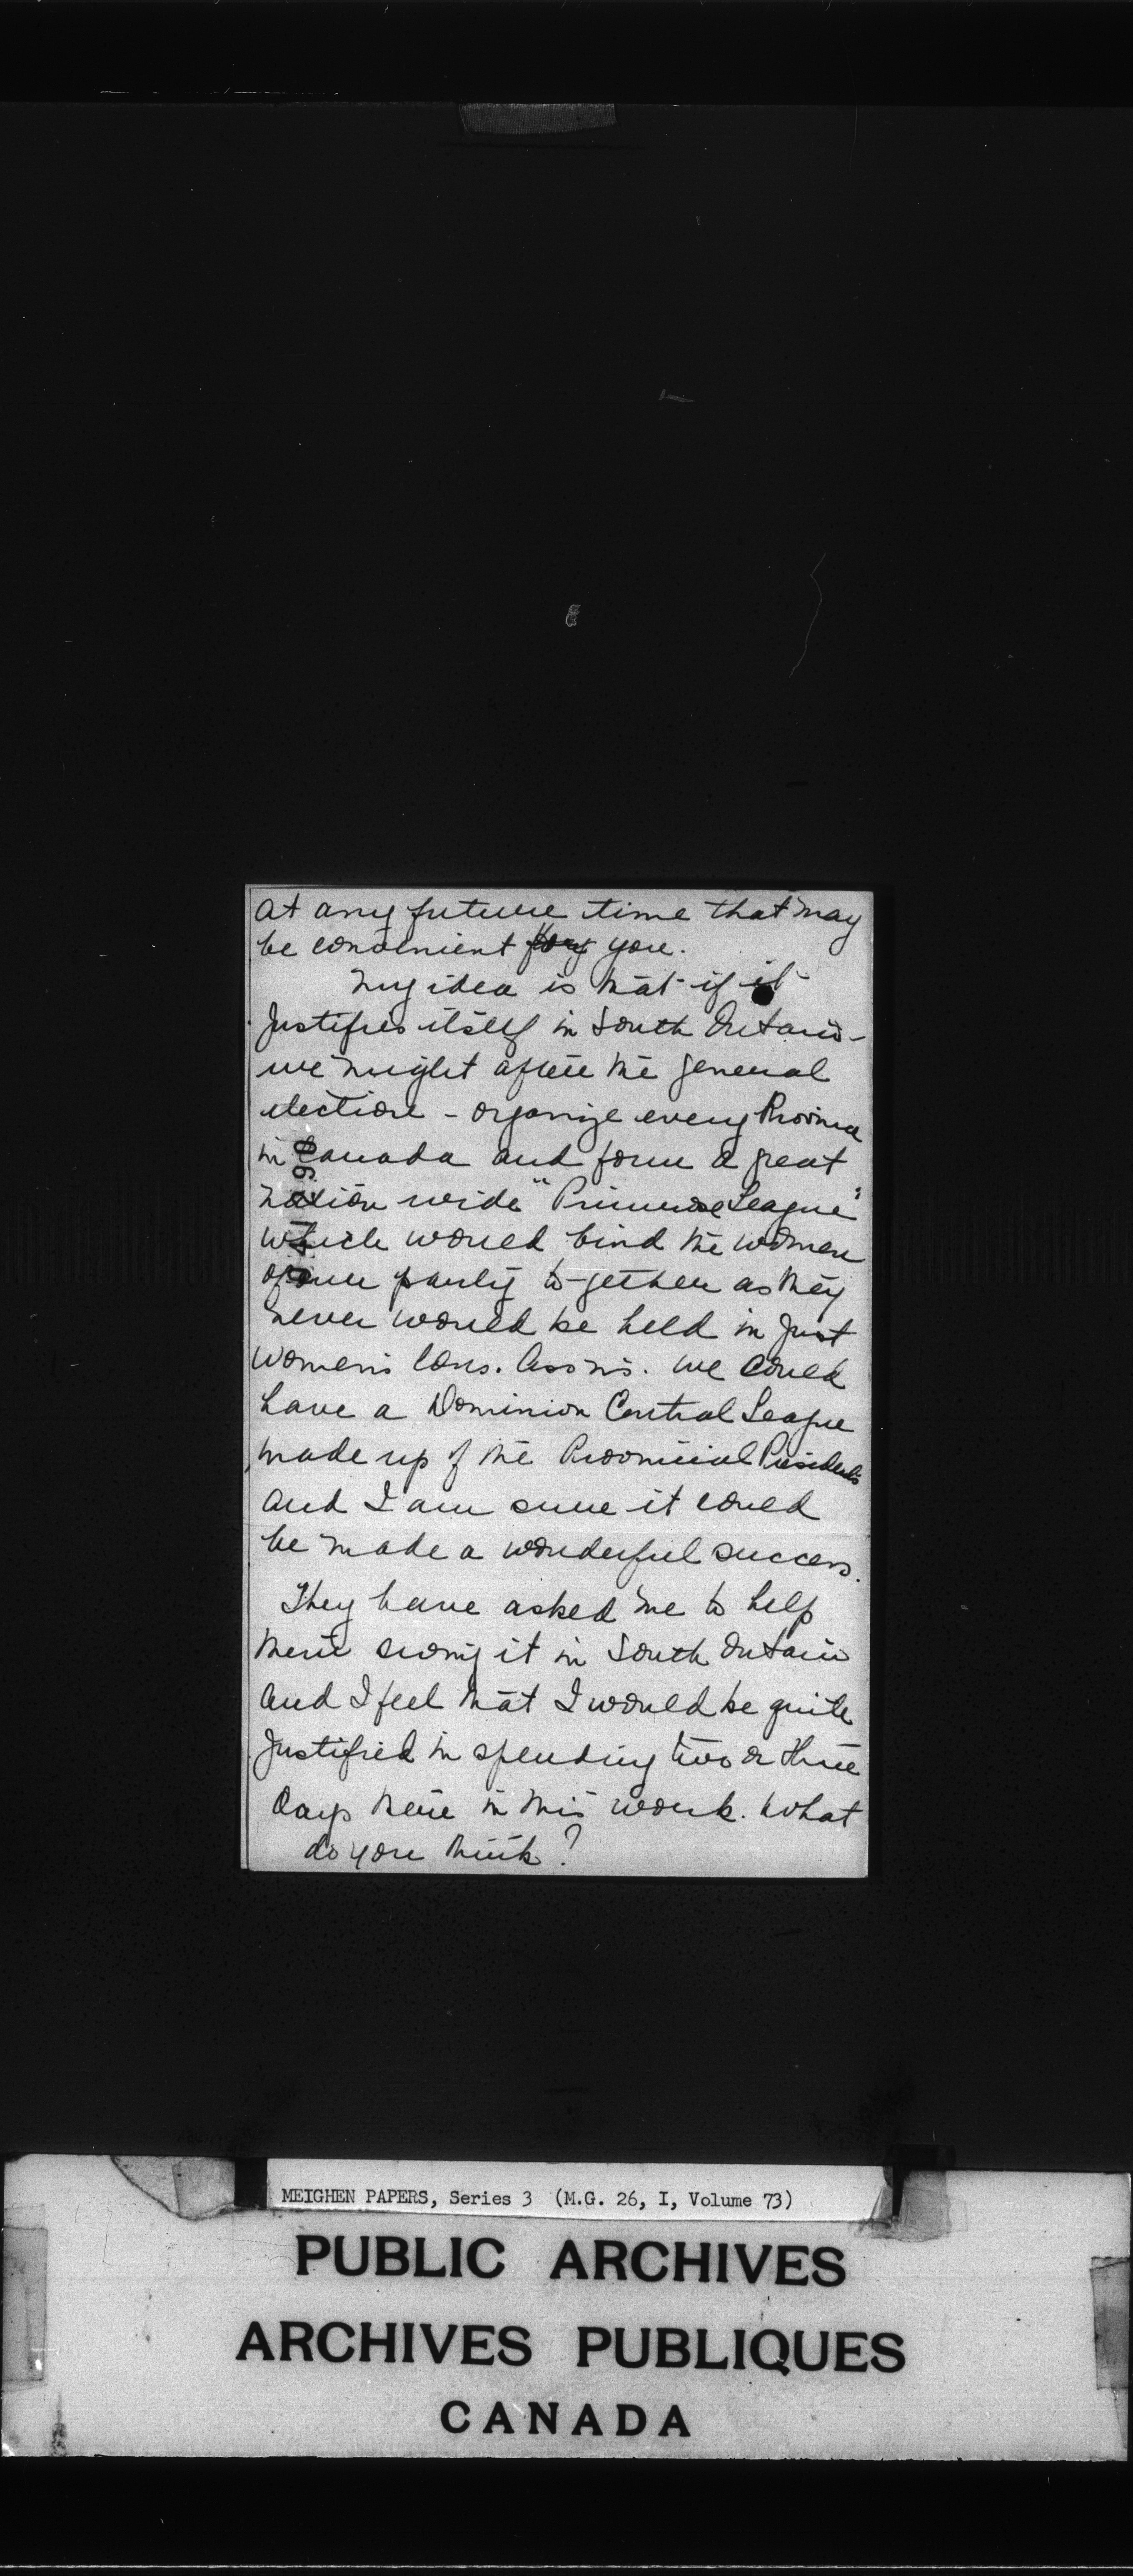 at any future time that may
be convenient for you.
My idea is that if it
justifies itself in South Ontario -
we might after the general
election - organize every Province
in Canada and form a great
nation wide "Primrose League"
which would bind the women
of our party to-gether as they
never would be held in just
Women's Cons. Assns. We could
have a Dominion Central League
made up of the Provincial Presidents
and I am sure it could
be made a wonderful success.
They have asked me to help
them swing it in South Ontario
and I feel that I would be quite
justified in spending two or three
days there in this work. What
do you think?
MEIGHEN PAPERS, Series 3 (M.G. 26, I, Volume 73)
PUBLIC ARCHIVES
ARCHIVES PUBLIQUES
CANADA